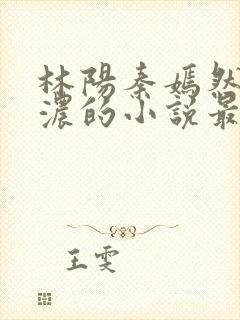 林陽秦嫣然
濃的小説最
王雯